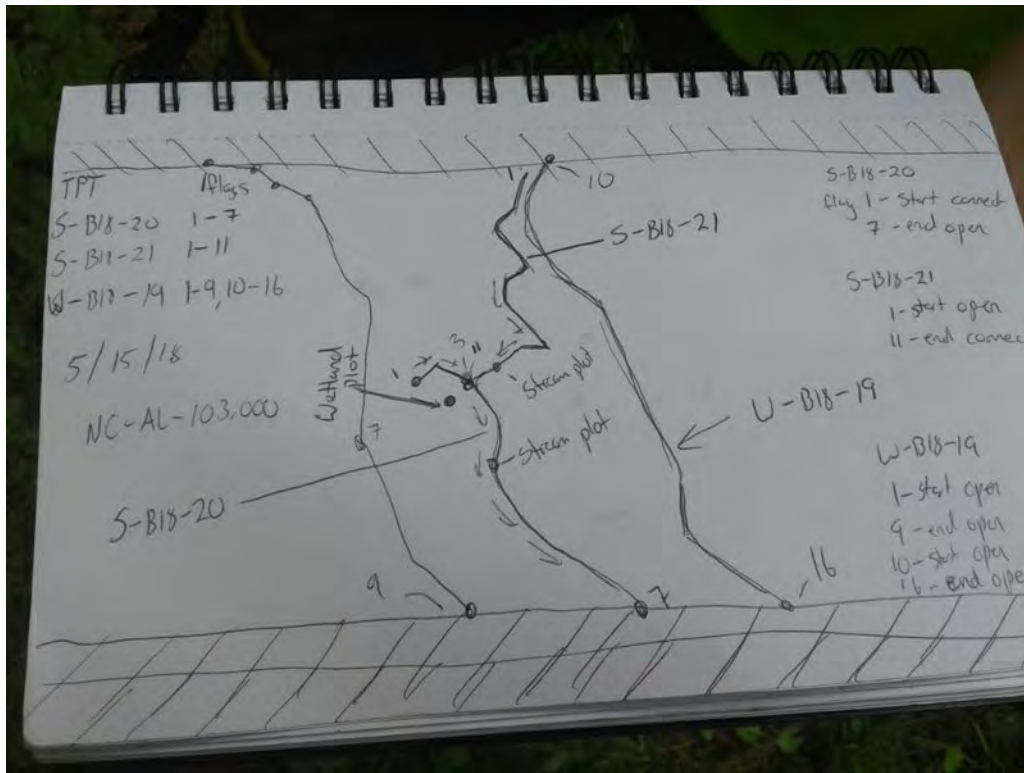 TPT flags
S-B18-20 1-7
S-B18-21 1-11
W-B18-19 1-9, 10-16
5/15/18
NC-AL-103,000
S-B18-20
Wetland plot
7
9
1
10
S-B18-21
1
3
11
1
Stream plot
Stream plot
7
W-B18-19
16
S-B18-20
flag 1 - Start connect
7 - end open
S-B18-21
1-start open
11-end connec
W-B18-19
1-start open
9-end open
10-start open
16-end ope